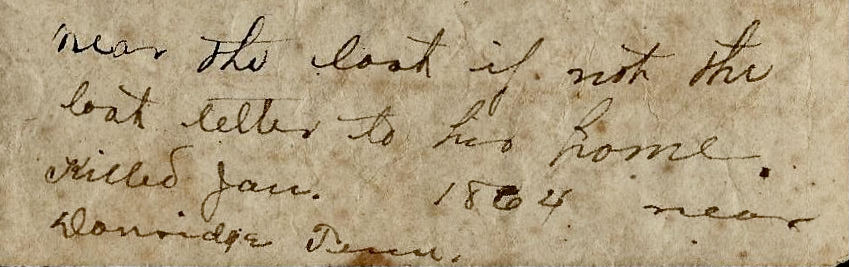 near the last if not the
last letter to his home.
Killed Jan. 1864 near
Danridge Tenn.